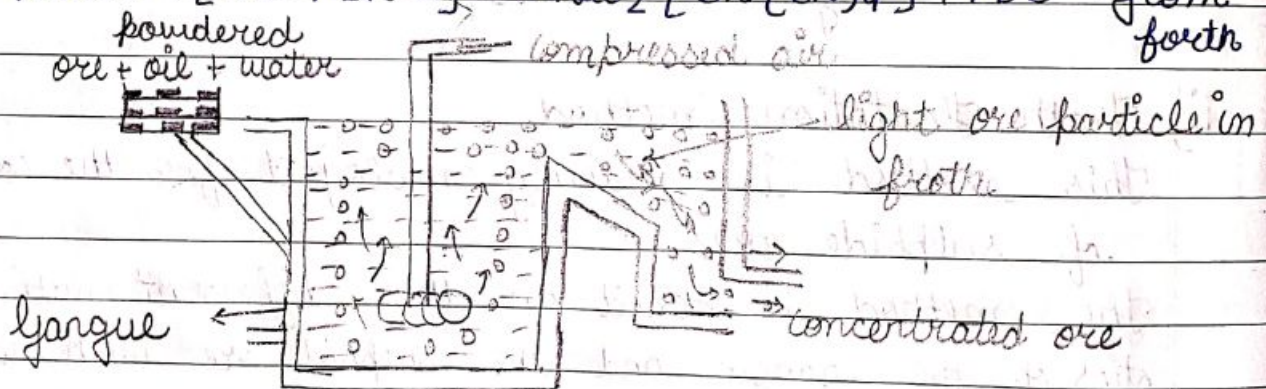 from
forth
powdered
ore + oil + water
compressed air
light ore particle in
froth
Gangue
concentrated ore